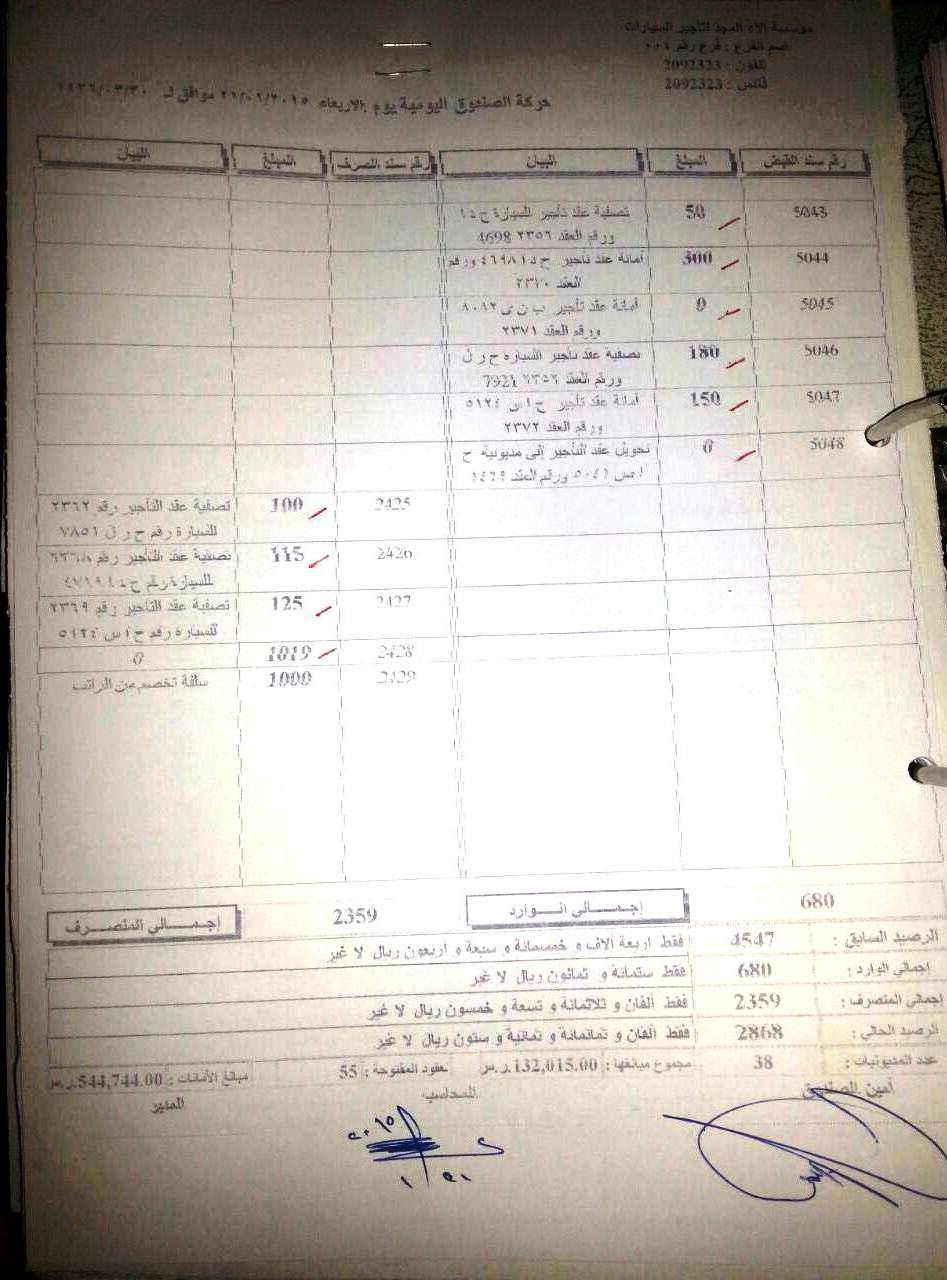 موسسة الاء المجد لتأجير السيارات
اسم الفرع : فرع رقم ٠٠٤
تلفون : 2092323
فاكس : 2092323
حركة الصندوق اليومية يوم الاربعاء ٢١/٠١/٢٠١٥ موافق لـ ١٤٣٦/٠٣/٣٠
رقم سند القبض المبلغ البيان رقم سند الصرف المبلغ البيان
5043 50 تصفية عقد تأجير السيارة ح د ا
ورقم العقد ٢٣٥٦ 4698
5044 300 أمانة عقد تأجير ح د ا ٤٦٩٨ ورقم
العقد ٢٣٧٠
5045 0 أمانة عقد تأجير ب ن ى ٨٠٨٢
ورقم العقد ٢٣٧١
5046 180 تصفية عقد تأجير السيارة ح ر ل
ورقم العقد ٢٣٥٢ 7921
5047 150 أمانة عقد تأجير ح ا س ٥١٢٤
ورقم العقد ٢٣٧٢
5048 0 تحويل عقد التأجير إلى مديونية ح
ا ص ٥٠٤١ ورقم العقد ١٤٦٩
2425 100 تصفية عقد التأجير رقم ٢٣٦٢
للسيارة رقم ح ر ل ٧٨٥١
2426 115 تصفية عقد التأجير رقم ٢٣٦٨
للسيارة رقم ح د ا ٤٧١٩
2427 125 تصفية عقد التأجير رقم ٢٣٦٩
للسيارة رقم ح ا س ٥١٢٤
2428 1019 0
2429 1000 سلفة تخصم من الراتب
680 إجمالي الوارد 2359 إجمالي المنصرف
الرصيد السابق : 4547 فقط اربعة الاف و خمسمائة و سبعة و اربعون ريال لا غير
إجمالي الوارد : 680 فقط ستمائة و ثمانون ريال لا غير
إجمالي المنصرف : 2359 فقط ألفان و ثلاثمائة و تسعة و خمسون ريال لا غير
الرصيد الحالي : 2868 فقط ألفان و ثمانمائة و ثمانية و ستون ريال لا غير
عدد المديونيات : 38 مجموع مبالغها : 132,015.00 ر.س عقود المفتوحة : 55 مبالغ الأمانات : 544,744.00 ر.س
أمين الصندوق المحاسب المدير